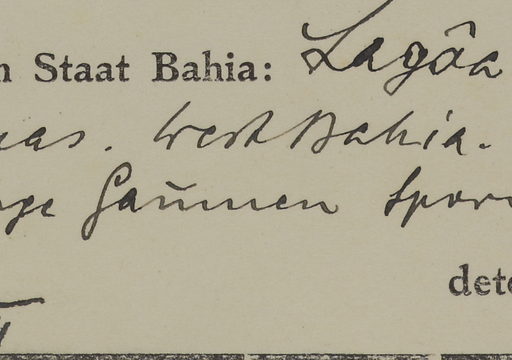 n Staat Bahia: Lagôa
as. West Bahia.
ge Spor
det